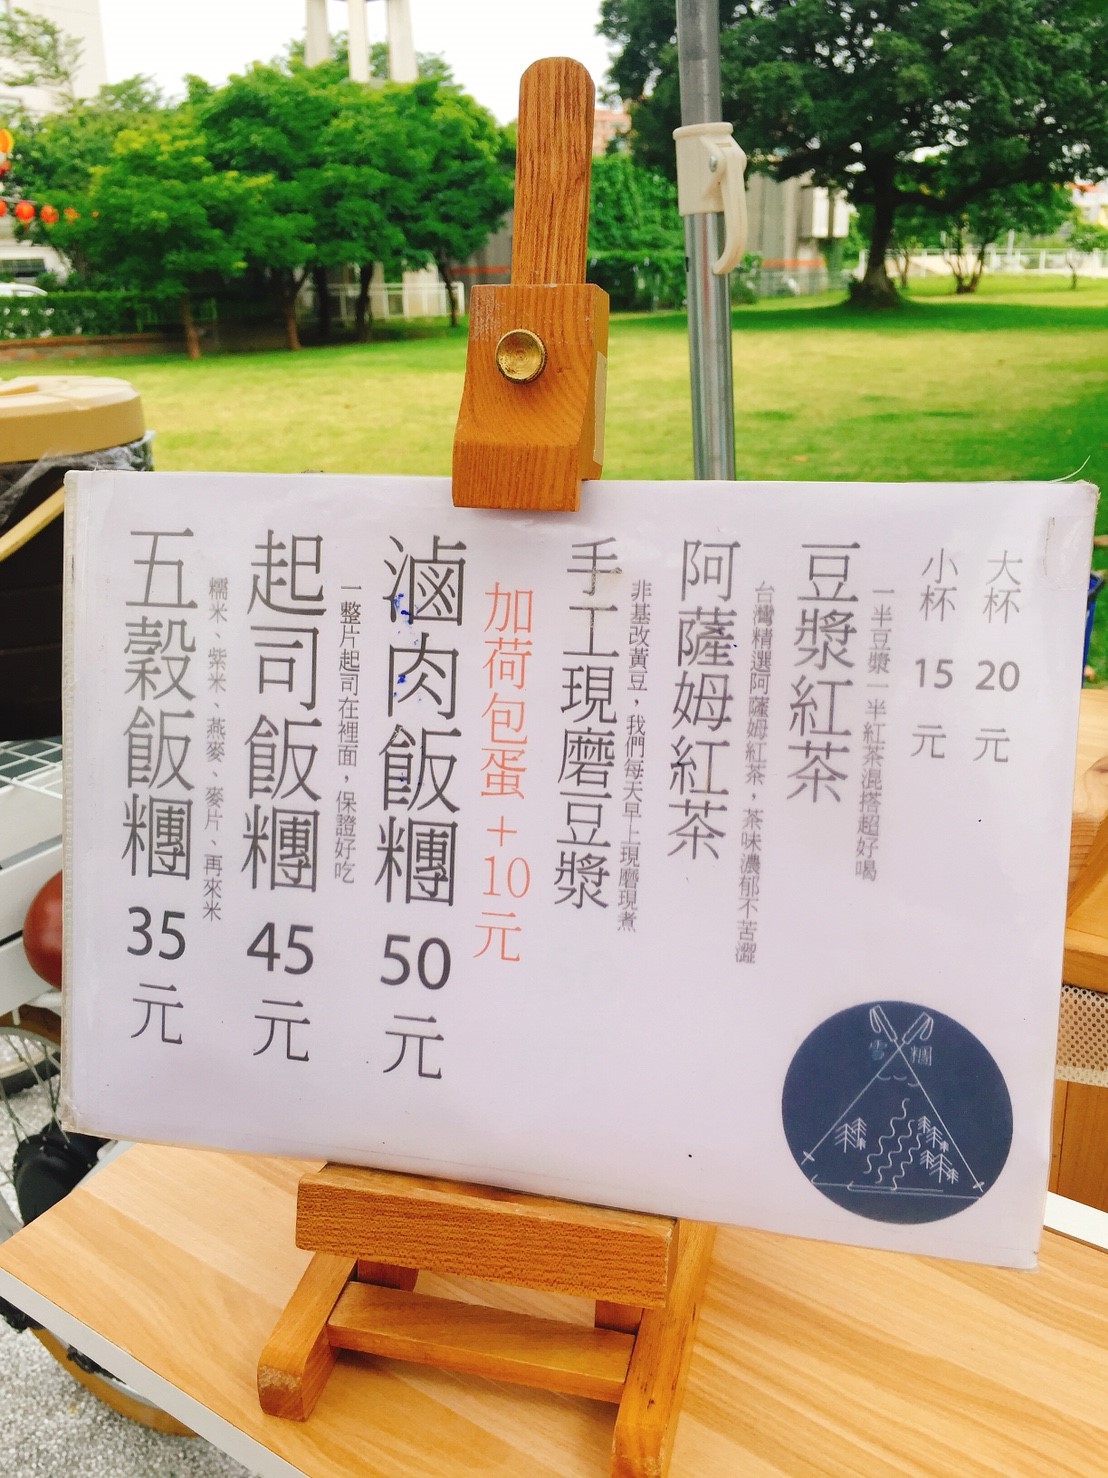 五穀飯糰 35 元
糯米、紫米、燕麥、麥片、再來米
起司飯糰 45 元
一整片起司在裡面，保證好吃
滷肉飯糰 50 元
加荷包蛋 +10元
手工現磨豆漿
非基改黃豆，我們每天早上現磨現煮
阿薩姆紅茶
台灣精選阿薩姆紅茶，茶味濃郁不苦澀
豆漿紅茶
一半豆漿一半紅茶混搭超好喝
小杯 15 元
大杯 20 元
雪糰